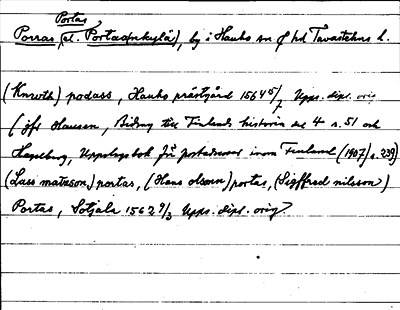 Portas
Porras (el. Portaankylä), by i Hauho sn of hd Tavastehus l.
(Knwth) podass, Hauho prästgård 1564 5/7 Upps. dipl. orig
(jfr Hausen, Bidrag till Finlands historia del 4 s. 51 och
Hagelberg, Uppslagsbok för postadresser inom Finland (1907) s. 239)
(Lass matzson) portas, (Hans olsonn) portas, (Sigffred nilsson)
Portas, Sotjala 1562 9/3 Upps. dipl. orig